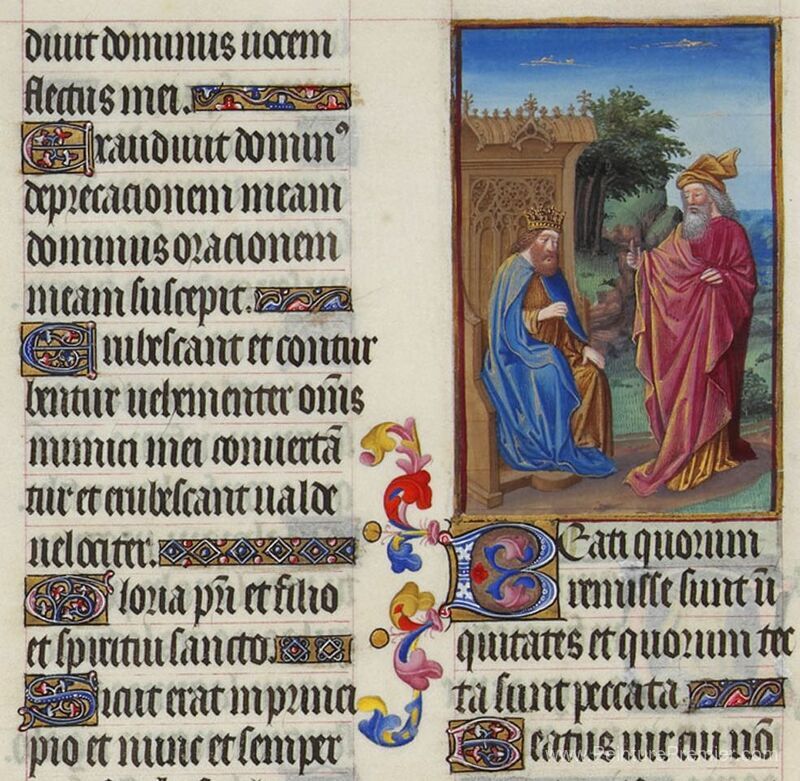 diuit dominus uocem
flectus mei.
Exaudiuit dominꝰ
deprecacionem meam
dominus oracionem
meam suscepit.
Erubescant et contur
bentur uehementer om̄s
inimici mei conuertā
tur et erubescant ualde
uelociter.
Gloria pr̄i et filio
et spiritui sancto.
Sicut erat in princi
pio et nunc et semper
Beati quorum
remisse sunt īi
quitates et quorum tec
ta sunt peccata.
Beatus uir cui nō
www.PeinturePremier.com